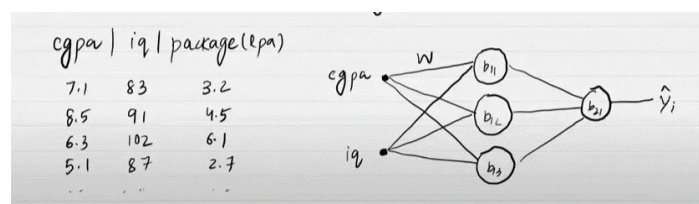 cgpa | iq | package(lpa)
7.1 83 3.2
8.5 91 4.5
6.3 102 6.1
5.1 87 2.7
.. .. ..
cgpa
W
iq
b11
b12
b13
b21
ŷi